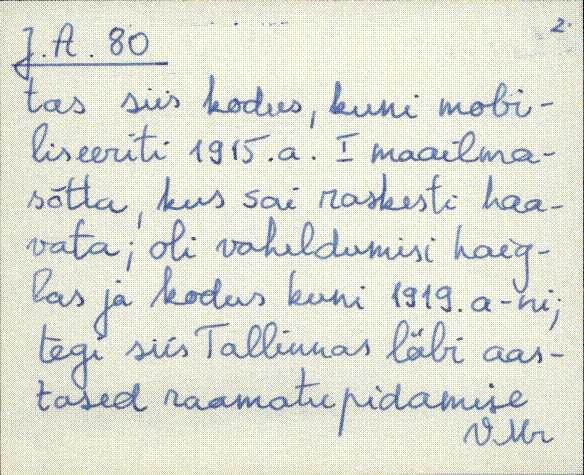 2.
J. A. 80
tas siis kodus, kuni mobi-
liseeriti 1915. a. I maailma-
sõtta, kus sai raskesti haa-
vata; oli vaheldumisi haig-
las ja kodus kuni 1919. a-ni;
tegi siis Tallinnas läbi aas-
tased raamatupidamise